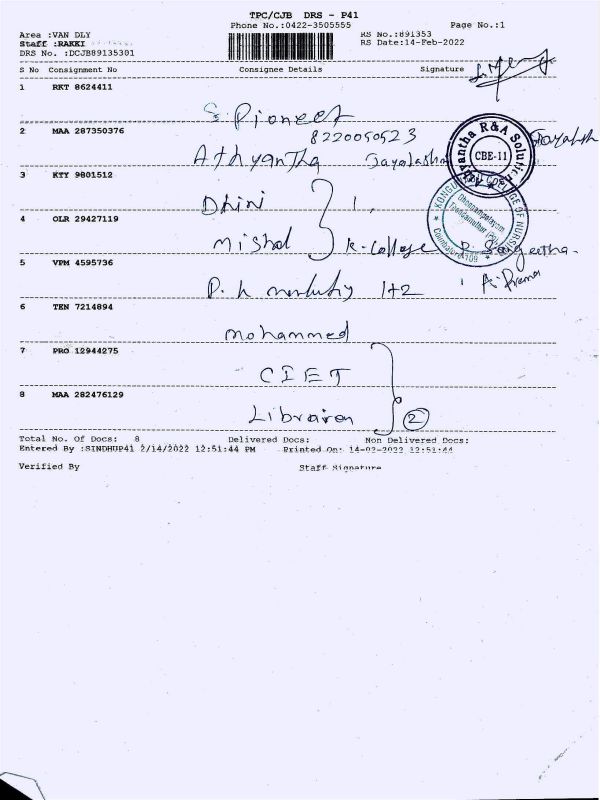 TPC/CJB DRS - P41
Phone No.:0422-3505555 Page No.:1
Area :VAN DLY RS No.:891353
Staff :RAKKI RS Date:14-Feb-2022
DRS No. :DCJB89135301
S No Consignment No Consignee Details Signature
1 RKT 8624411
S. Pioneer
2 MAA 287350376 8220050523
Athyantha
Athyantha R&A Solution
CBE-11
3 KTY 9801512
Dhini
4 OLR 29427119
Mishal K-College P. Sangeetha
Coimbatore
5 VPM 4595736 A. Prema
1+2
6 TEN 7214894
Mohammed
7 PRO 12944275
CIET
8 MAA 282476129
Librarian 2
Total No. Of Docs: 8 Delivered Docs: Non Delivered Docs:
Entered By :SINDHUP41 2/14/2022 12:51:44 PM Printed On: 14-02-2022 12:51:44
Verified By Staff Signature